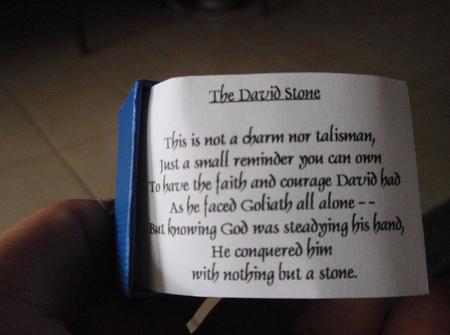 The David Stone
This is not a charm nor talisman,
Just a small reminder you can own
To have the faith and courage David had
As he faced Goliath all alone - -
But knowing God was steadying his hand,
He conquered him
with nothing but a stone.